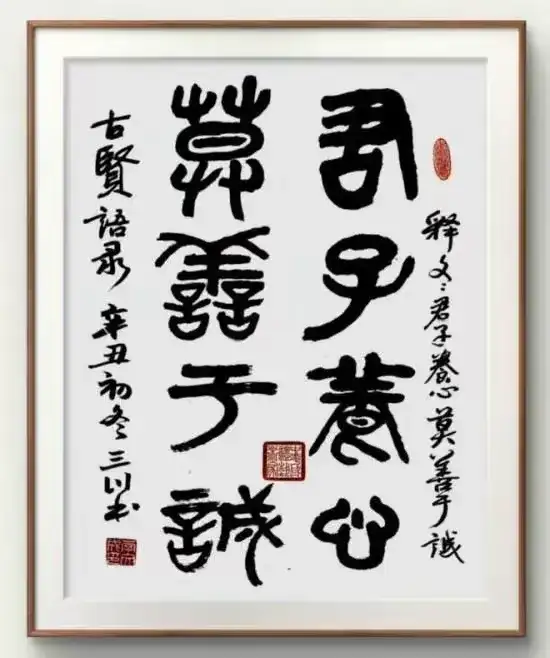 释文:君子養心莫善于誠
君子養心
莫譱于誠
古賢語录 辛丑初冬三川书